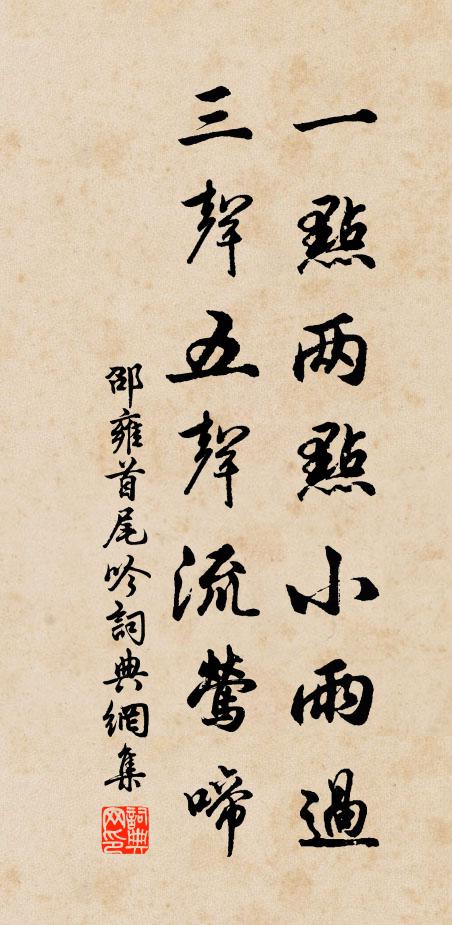 一點两點小雨過
三聲五聲流鶯啼
邵雍首尾吟詞典網集
詞典网印